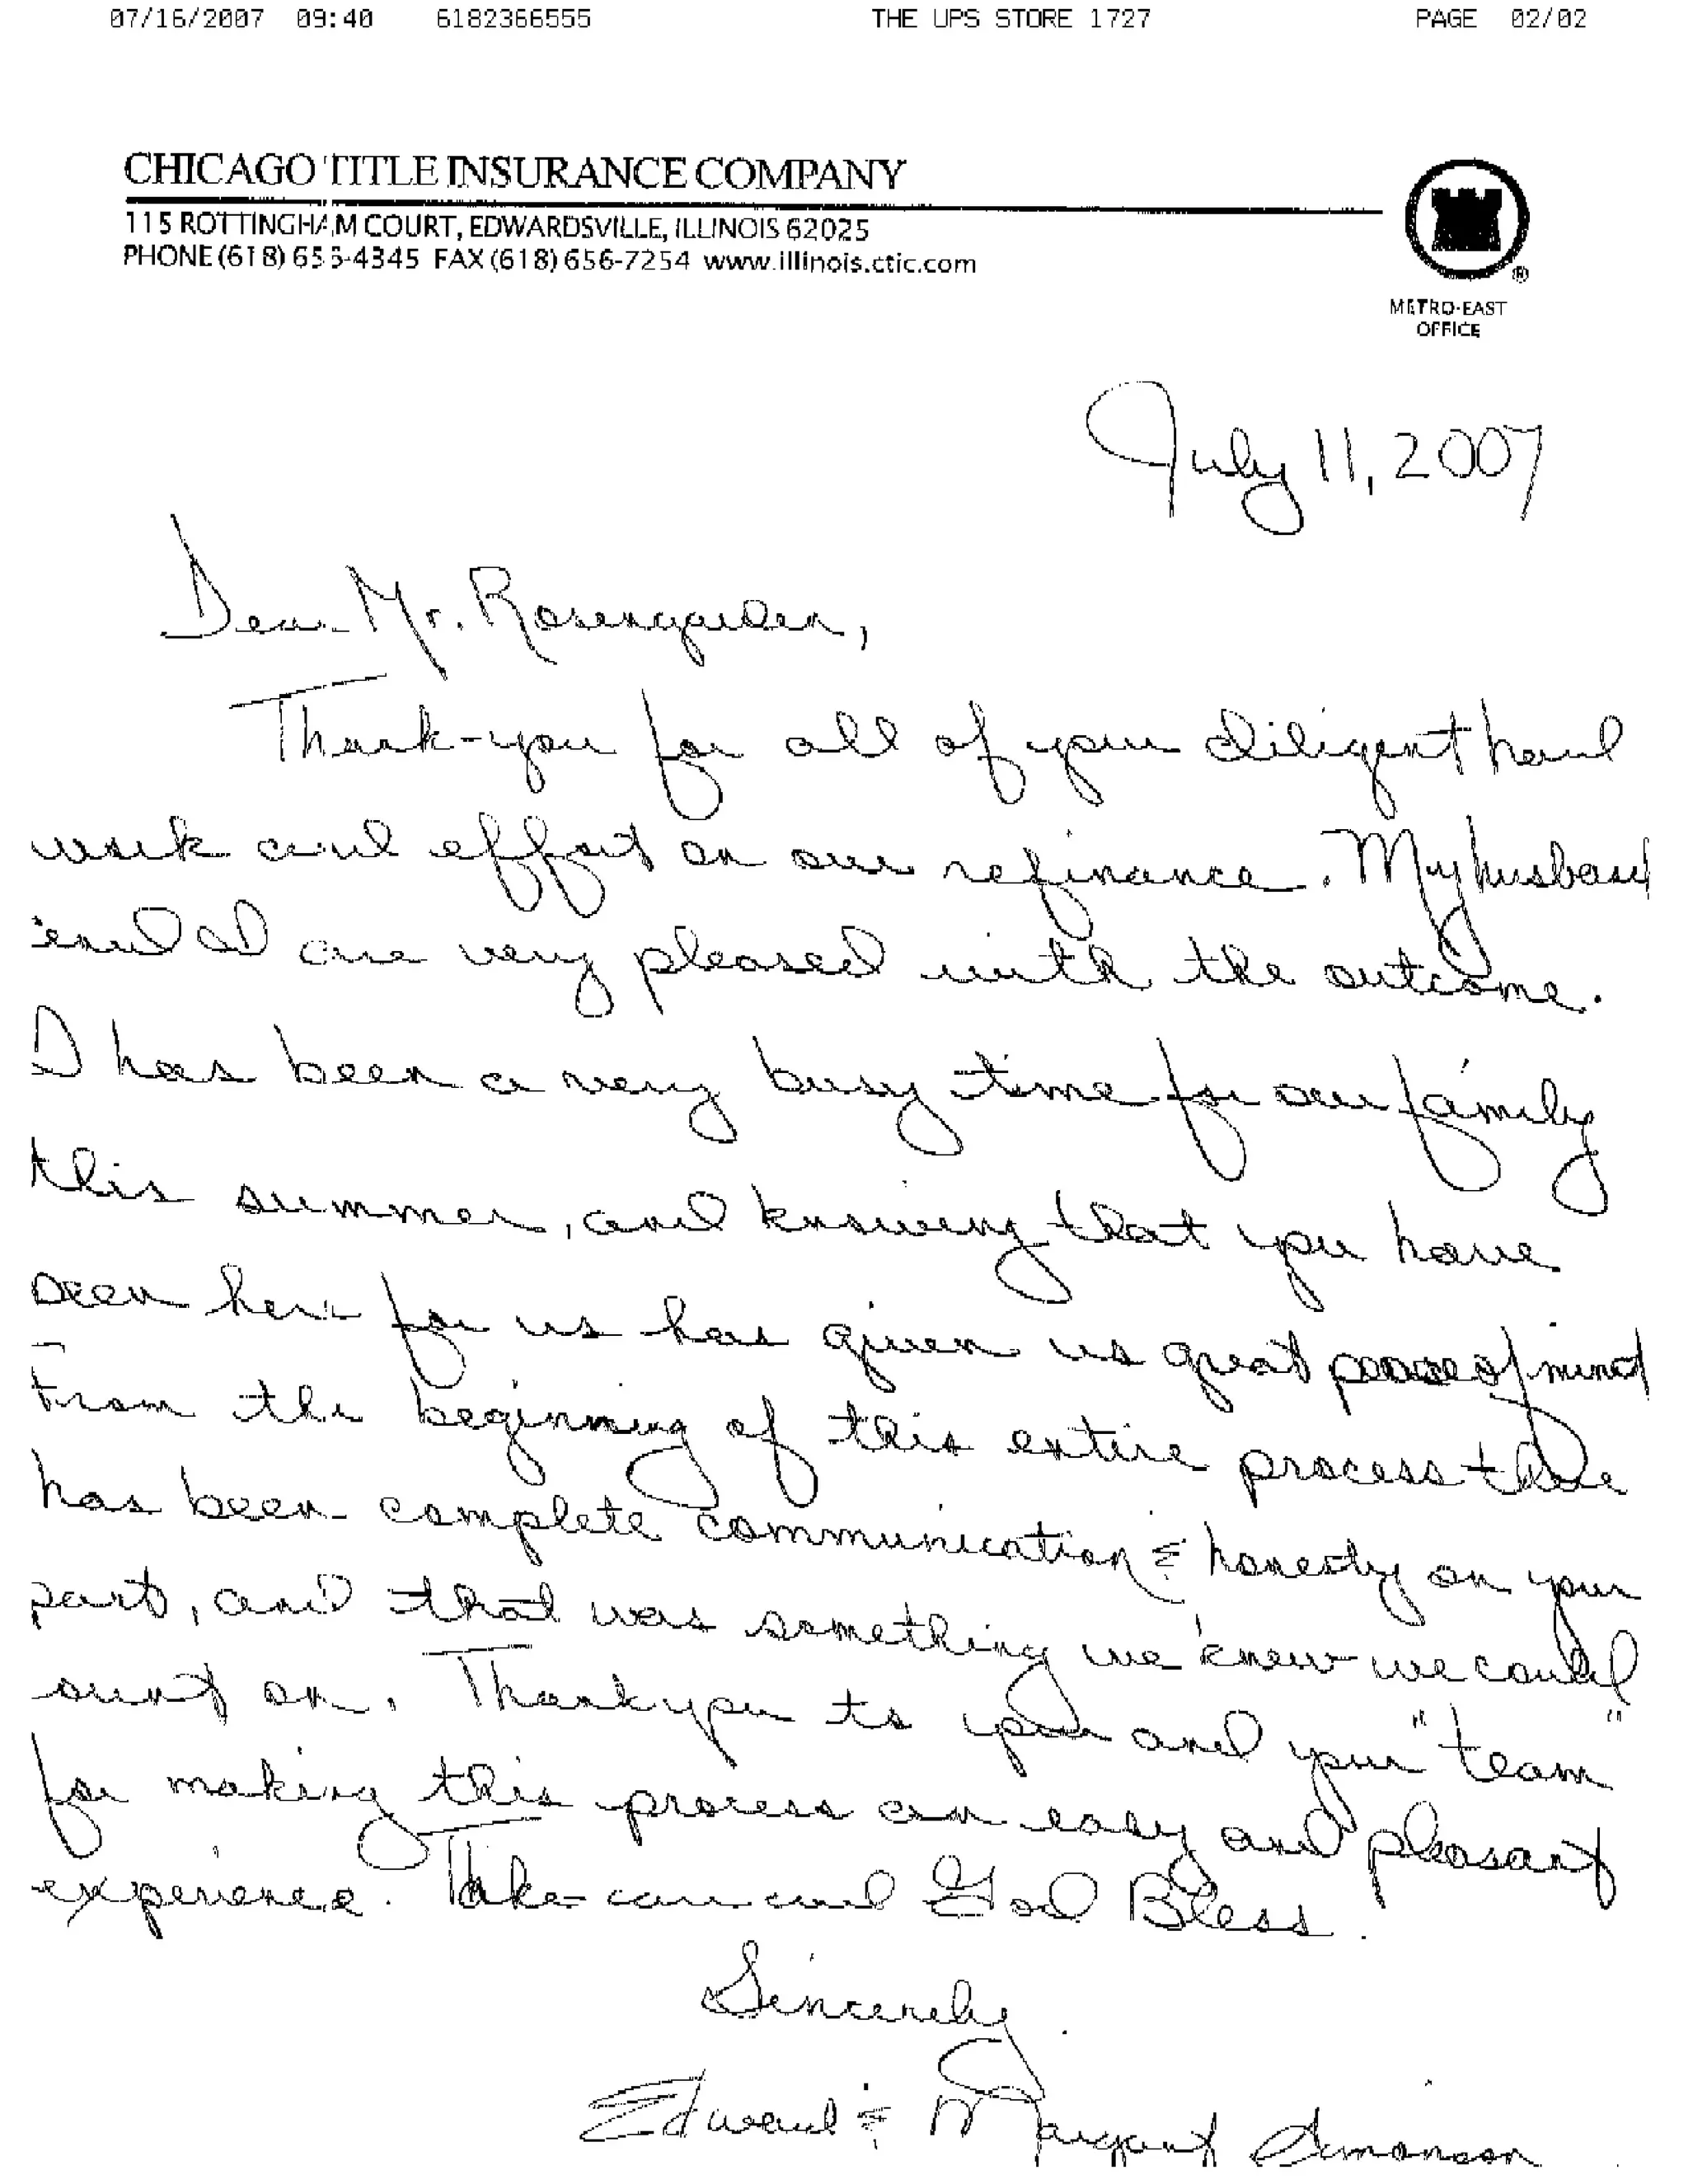 07/16/2007 09:40 6182366555 THE UPS STORE 1727 PAGE 02/02
CHICAGO TITLE INSURANCE COMPANY
115 ROTTINGHAM COURT, EDWARDSVILLE, ILLINOIS 62025
PHONE (618) 656-4345 FAX (618) 656-7254 www.illinois.ctic.com
®
METRO-EAST
OFFICE
July 11, 2007
Dear Mr. Rosengarden,
Thank-you for all of your diligent hard
work and effort on our refinance. My husband
and I are very pleased with the outcome.
I has been a very busy time for our family
this summer, and knowing that you have
been here for us has given us great peace of mind
From the beginning of this entire process there
has been complete communication & honesty on your
part, and that was something we knew we could
ount on. Thank you to you and your "team"
for making this process an easy and pleasant
experience. Take care and God Bless.
Sincerely
Edward & Margaret Simonson